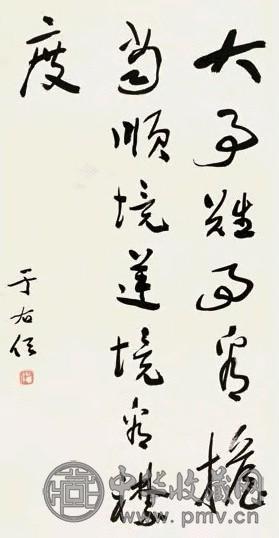 大事難事看擔
當順境逆境看襟
度
于右任
中华收藏网
www.pmv.cn